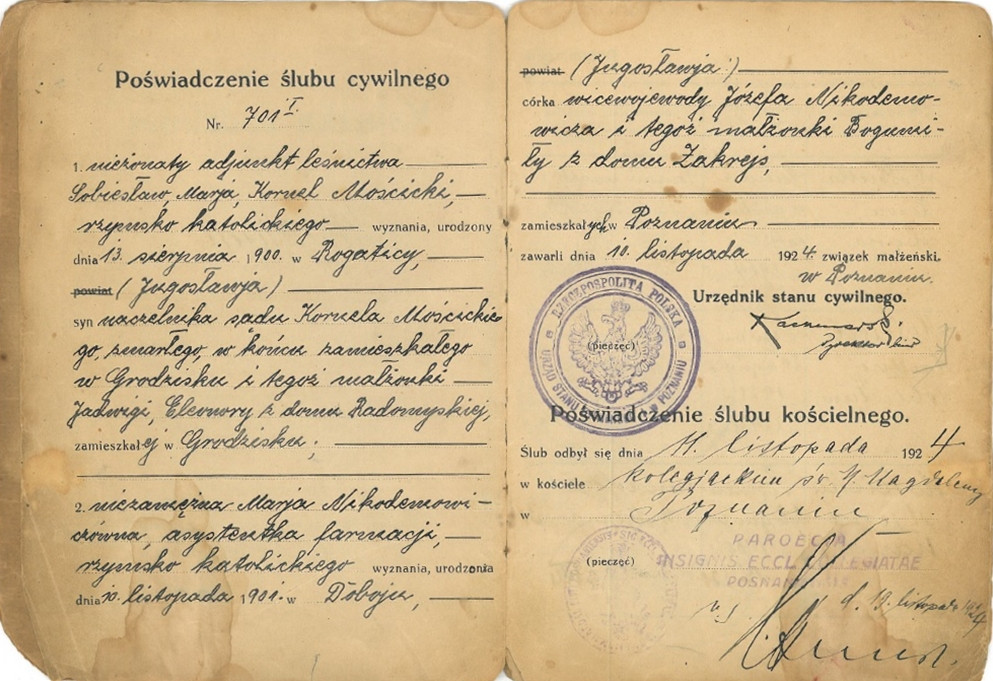 Poświadczenie ślubu cywilnego
Nr. 701 I.
1. nieżonaty adjunkt leśnictwa
Sobiesław, Marja, Kornel Mościcki,
rzymsko katolickiego wyznania, urodzony
dnia 13. sierpnia 1900. w Rogaticy,
powiat (Jugosławja)
syn naczelnika sądu Kornela Mościckie-
go, zmarłego, w końcu zamieszkałego
w Grodzisku i tegoż małżonki
Jadwigi, Eleonory z domu Radomyskiej,
zamieszkałej w Grodzisku;
2. niezamężna Marja Nikodemowi-
czówna, asystentka farmacji,
rzymsko katolickiego wyznania, urodzona
dnia 10. listopada 1901. w Doboju,
powiat (Jugosławja)
córka wicewojewody Józefa Nikodemo-
wicza i tegoż małżonki Bogumi-
ły z domu Zakrejs,
zamieszkałych w Poznaniu
zawarli dnia 10. listopada 1924. związek małżeński.
w Poznaniu.
Urzędnik stanu cywilnego.
RZECZPOSPOLITA POLSKA
URZĄD STANU POZNANIU
(pieczęć)
Poświadczenie ślubu kościelnego.
Ślub odbył się dnia 11. listopada 1924
w kościele kolegjackim św. M. Magdaleny
w Poznaniu
PAROECIA
INSIGNIS ECCL. COLLEGIATAE
POSNANIENSIS
(pieczęć)
d. 19. listopada 1924